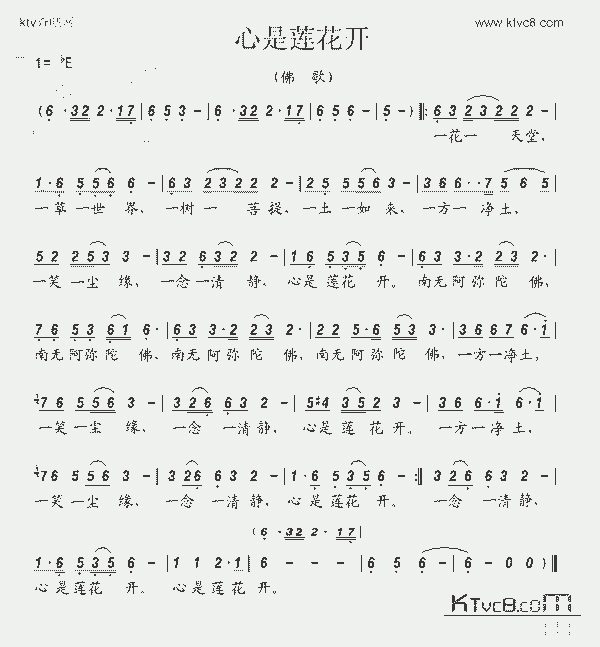 www.ktvc8.com
心是莲花开
1= ♭E
（佛 歌）
(6·32 2·17|653-|6·32 2·17|656-|5-)‖:63 2322|2-|
一花一 天堂、
1·6 556 6-|63 2322 2-|25 556 3-|366 6··7 5 6 5|
一草一世界、一树一 菩提、一土一如来、一方一净土、
52 253 3-|32 62 3 2-|16 535 6-|63 3·2 23 2·|
一笑一尘缘、一念一清静、心是莲花开。南无阿弥陀佛、
76 53 61 6·|63 3·2 23 2·|22 5·6 53 2·|3667 6·1|
南无阿弥陀佛、南无阿弥陀佛、南无阿弥陀佛、一方一净土、
76 556 3-|326 63 2-|5#4 352 3-|36 6·1 6·1|
一笑一尘缘、一念一清静、心是莲花开。一方一净土、
76 556 3-|326 63 2-|16 535 6-:‖326 63 2-|
一笑一尘缘、一念一清静、心是莲花开。一念一清静、
(6·32 2·17
1·6 535 6-|11 2·1|6---|6 5 6-|6-00)‖
心是莲花开。心是莲花开。
KTvc8.com